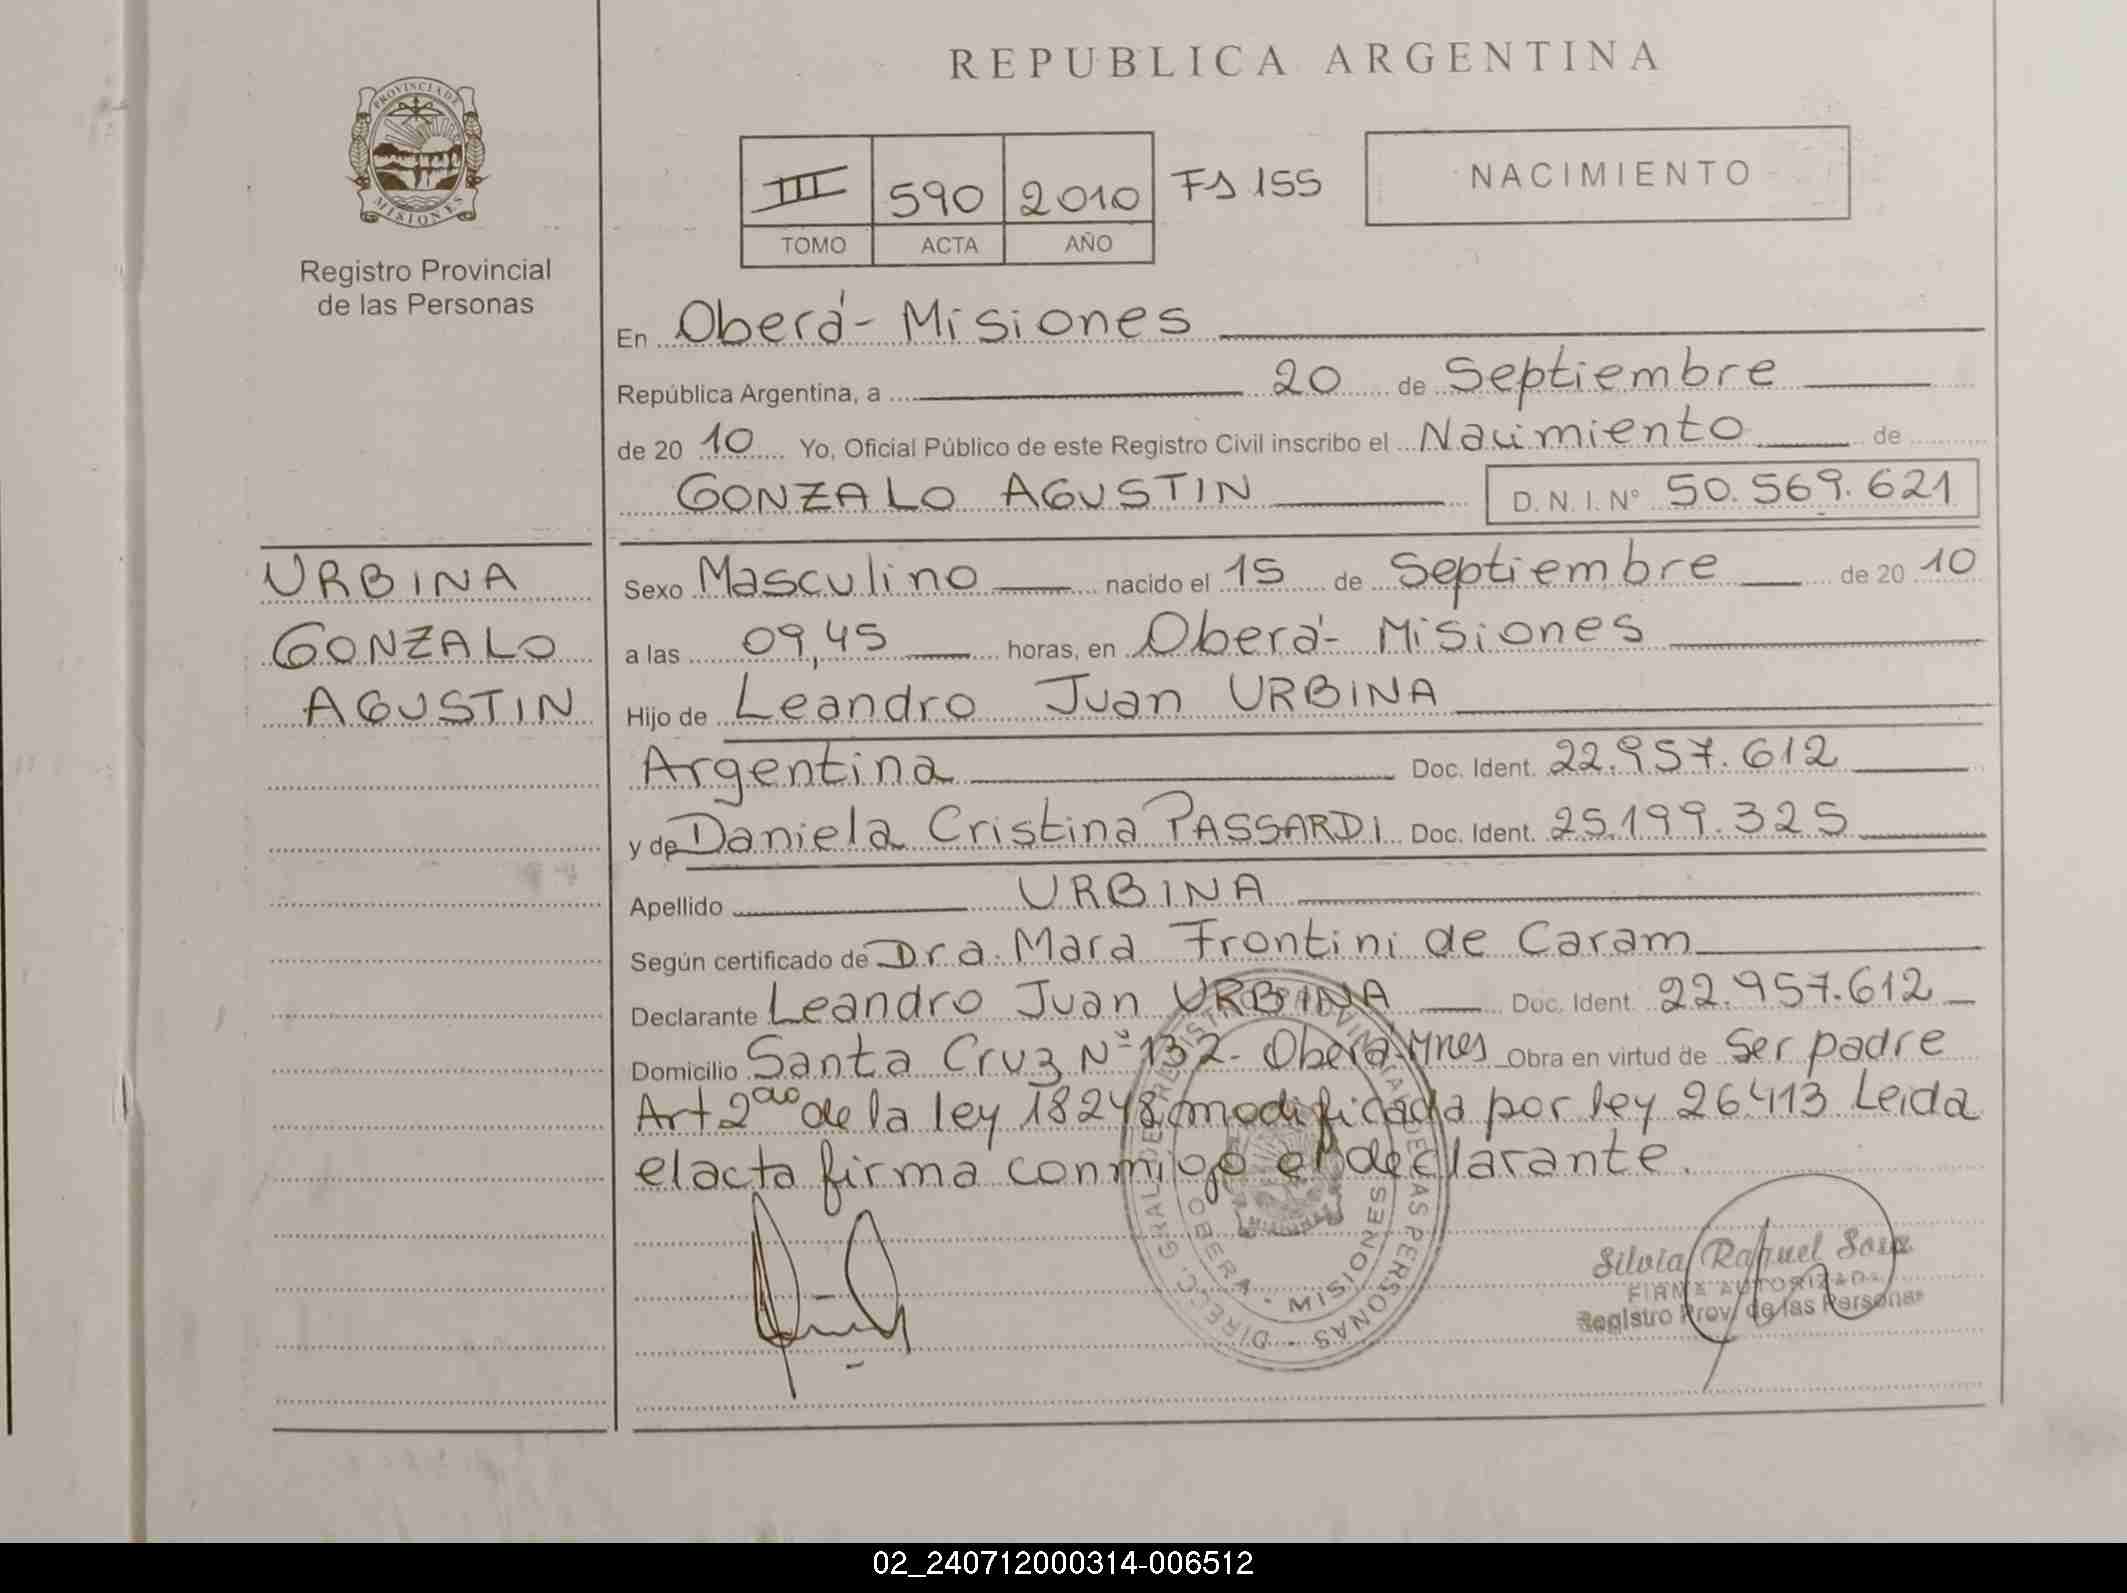 REPUBLICA ARGENTINA
PROVINCIA DE
MISIONES
Registro Provincial
de las Personas
III 590 2010 Fs 155
TOMO ACTA AÑO
NACIMIENTO
En Oberá - Misiones
República Argentina, a 20 de Septiembre
de 20 10 Yo, Oficial Público de este Registro Civil inscribo el Nacimiento de
GONZALO AGUSTIN D. N. I. Nº 50.569.621
URBINA
GONZALO
AGUSTIN
Sexo Masculino nacido el 15 de Septiembre de 20 10
a las 09,45 horas, en Oberá - Misiones
Hijo de Leandro Juan URBINA
Argentina Doc. Ident. 22.957.612
y de Daniela Cristina PASSARDI Doc. Ident. 25.199.325
Apellido URBINA
Según certificado de Dra. Mara Frontini de Caram
Declarante Leandro Juan URBINA Doc. Ident. 22.957.612
Domicilio Santa Cruz Nº 132 - Oberá Mnes Obra en virtud de Ser padre
Art 2do de la ley 18248 modificada por ley 26413 Leida
el acta firma conmigo el declarante.
DIREC. GRAL. DE REGISTRO PROVINCIAL DE LAS PERSONAS
OBERA - MISIONES
Silvia Raquel Sosa
FIRMA AUTORIZADA
Registro Prov. de las Personas
02_240712000314-006512